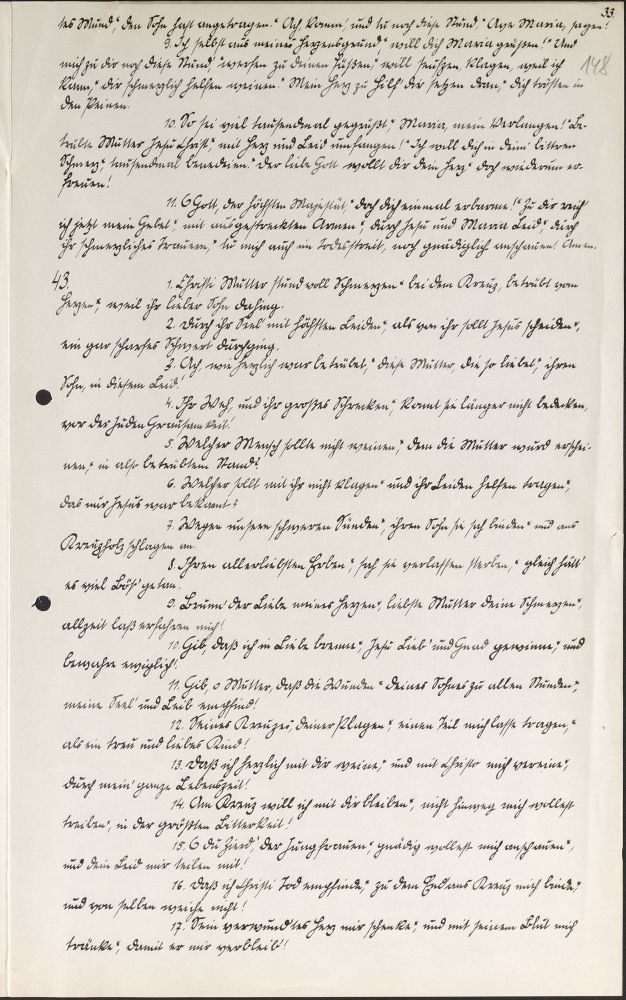 33.
148
tes Mund", den Sohn hast angetragen." Ach komm, und tu noch diese Stund," Ave Maria, sagen!
9. Ich selbst aus meines Herzensgrund" will dich Maria grüßen!" Und
mich zu dir noch diese Stund" werfen zu deinen Füßen," will seufzen klagen, weil ich
kann," dir schmerzlich helfen weinen." Mein Herz zu Hilf' dir setzen dran," dich trösten in
den Peinen.
10. So sei viel tausendmal gegrüßt," Maria, mein Verlangen!" Be-
trübte Mutter Jesu Christ," mit Herz und Leid umfangen!" Ich will dich in deim' bittern
Schmerz," tausendmal benedeien." Der liebe Gott wollt dir dein Herz" doch wiederum er-
freuen!
11. O Gott, der höchsten Majestät," doch dich einmal erbarme!" Zu dir reich'
ich jetzt mein Gebet," mit ausgestreckten Armen," durch Jesu und Maria Leid," durch
ihr schmerzliches Trauern," tu mich auch im Todesstreit, noch gnädiglich anschauen! Amen.
43. 1. Christi Mutter stund voll Schmerzen" bei dem Kreuz, betrübt vom
Herzen," weil ihr lieber Sohn dahing.
2. Durch ihr Seel' mit höchsten Leiden," als von ihr sollt Jesus scheiden",
ein gar scharfes Schwert durchging.
3. Ach, wie herzlich war betrübet," diese Mutter, die so liebet," ihren
Sohn, in diesem Leid!
4. Ihr Weh, und ihr großes Schrecken," konnt sie länger nicht bedecken,
vor der Juden Grausamkeit!
5. Welcher Mensch sollte nicht weinen," dem die Mutter würd erschei-
nen," in also betrübtem Stand?
6. Welcher sollt mit ihr nicht klagen" und ihr Leiden helfen tragen",
das nur Jesus war bekannt?
7. Wegen unsern schweren Sünden," ihren Sohn sie sah binden" und ans
Kreuzholz schlagen an.
8. Ihren allerliebsten Erben," sah sie verlassen sterben," gleich hätt'
es viel Bös' getan.
9. Brunn' der Liebe meines Herzen", liebste Mutter deine Schmerzen",
allzeit laß erfahren mich!
10. Gib, daß ich in Liebe brenne," Jesu Lieb' und Gnad gewinne," und
bewahre ewiglich!
11. Gib, o Mutter, daß die Wunden" deines Sohnes zu allen Stunden,"
meine Seel' und Leib empfind!
12. Seines Kreuzes, deiner Klagen," einen Teil mich lasse tragen,"
als ein treu und liebes Kind!
13. Daß ich herzlich mit dir weine," und mit Christo mich vereine",
durch mein' ganze Lebenszeit!
14. Am Kreuz will ich mit dir bleiben", nicht hinweg mich wollest
treiben", in der größten Bitterkeit!
15. O du Zierd', der Jungfrauen" gnädig wollest mich anschauen",
und dein Leid mir teilen mit!
16. Daß ich Christi Tod empfinde," zu dem End' ans Kreuz mich binde,"
und von selben weiche nicht!
17. Sein verwund'tes Herz mir schenke", und mit seinem Blut mich
tränke", damit er mir verbleib!